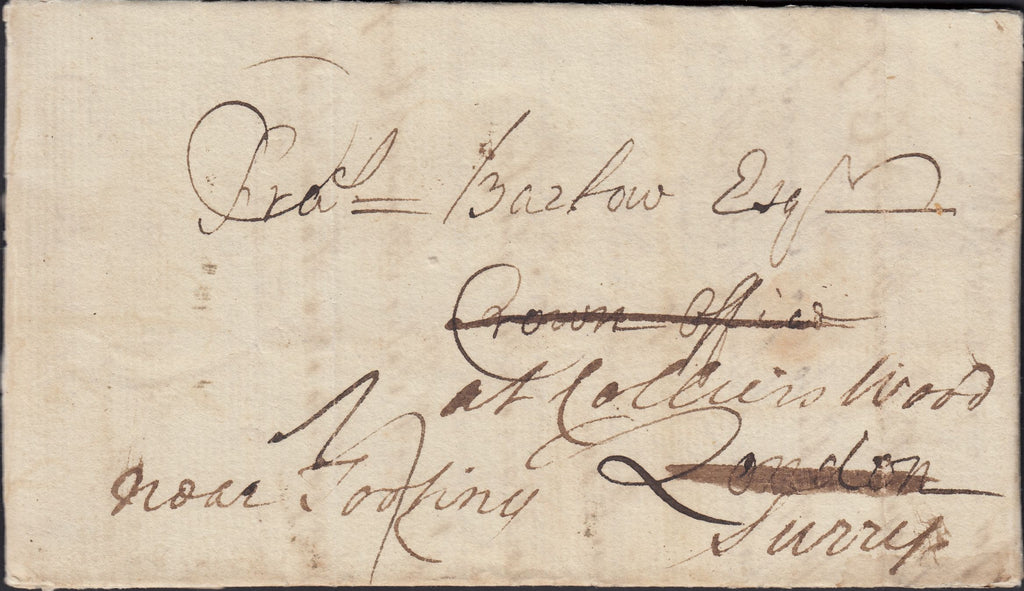 Frac.s Barlow Esq.r
Crown Office
at Colliers Wood
near Tooting London
Surry